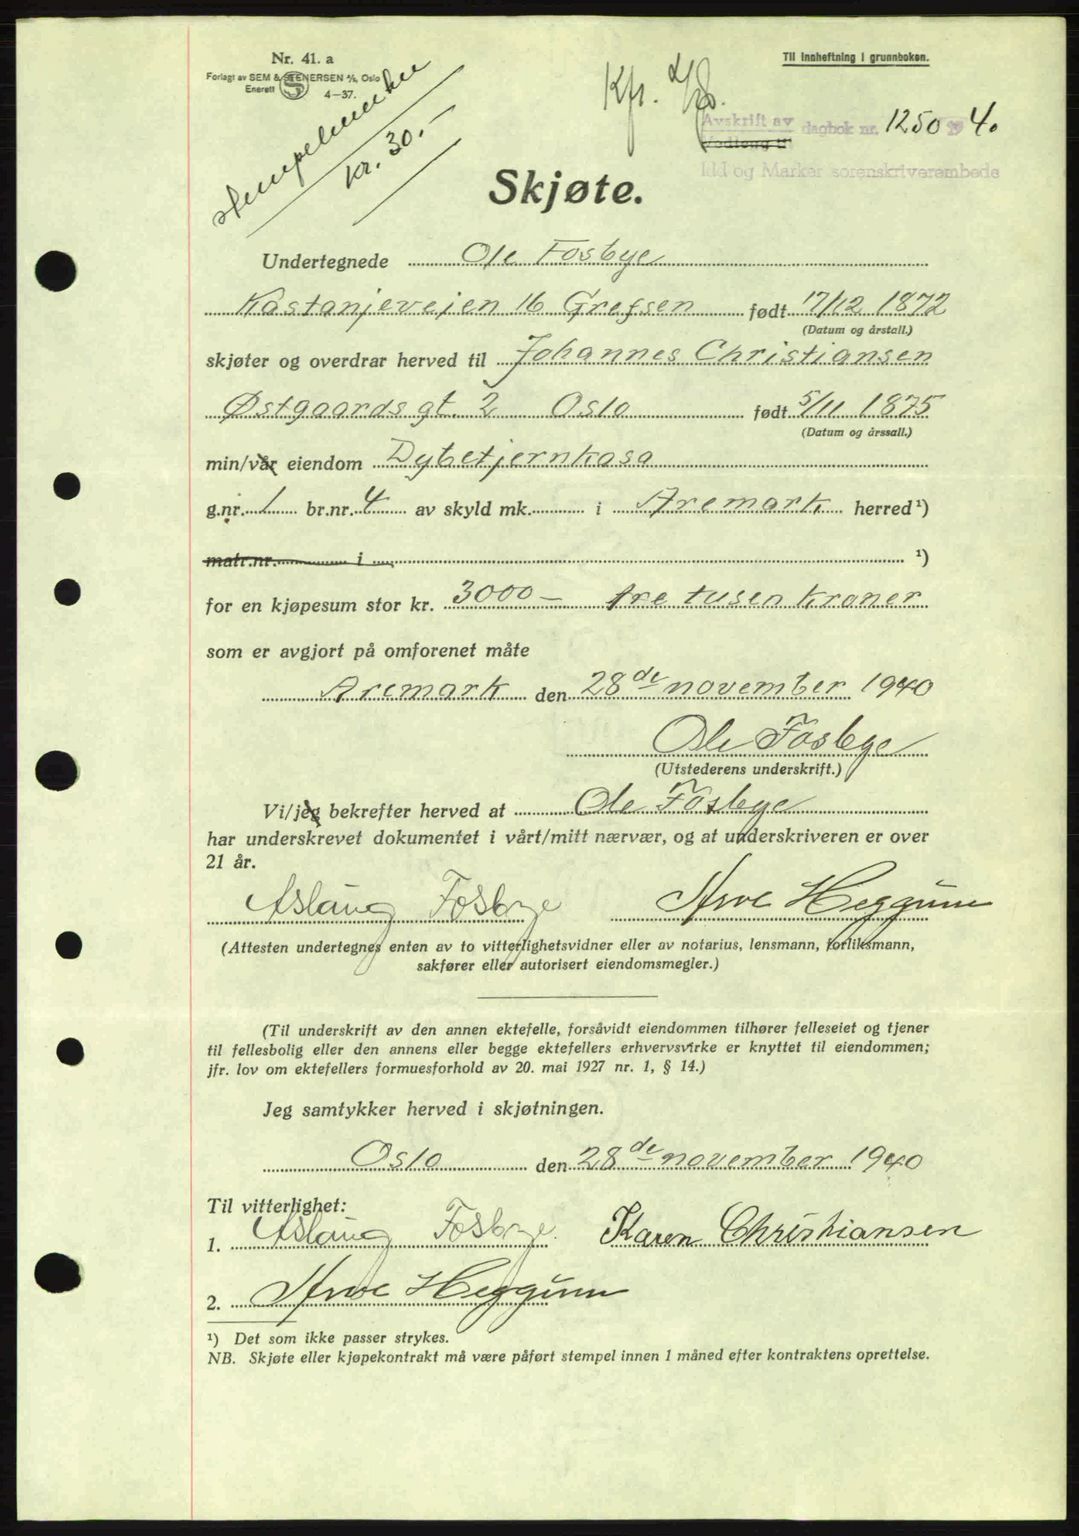 Nr. 41. a
Forlagt av SEM & STENERSEN A/S, Oslo
Enerett
4—37.
Til innheftning i grunnboken.
stempelmerke
kr. 30.-
Kfr.
Avskrift av dagbok nr. 1250 194 0.
Idd og Marker sorenskriverembede
Skjøte.
Undertegnede Ole Fosbye
Kastanjeveien 16 Grefsen født 17/12 1872
(Datum og årstall.)
skjøter og overdrar herved til Johannes Christiansen
Østgaards gt. 2 Oslo født 5/11 1875
(Datum og årssall.)
min/vår eiendom Dybetjernkasa
g.nr. 1 br.nr. 4 av skyld mk. i Aremark herred ¹)
matr.nr. i ¹)
for en kjøpesum stor kr. 3000 — tre tusen kroner
som er avgjort på omforenet måte
Aremark den 28de november 1940
Ole Fosbye
(Utstederens underskrift.)
Vi/jeg bekrefter herved at Ole Fosbye
har underskrevet dokumentet i vårt/mitt nærvær, og at underskriveren er over
21 år.
Aslaug Fosbye Arve Heggum
(Attesten undertegnes enten av to vitterlighetsvidner eller av notarius, lensmann, forliksmann,
sakfører eller autorisert eiendomsmegler.)
(Til underskrift av den annen ektefelle, forsåvidt eiendommen tilhører felleseiet og tjener
til fellesbolig eller den annens eller begge ektefellers erhvervsvirke er knyttet til eiendommen;
jfr. lov om ektefellers formuesforhold av 20. mai 1927 nr. 1, § 14.)
Jeg samtykker herved i skjøtningen.
Oslo den 28de november 1940
Til vitterlighet:
1. Aslaug Fosbye. Karen Christiansen
2. Arve Heggum
¹) Det som ikke passer strykes.
NB. Skjøte eller kjøpekontrakt må være påført stempel innen 1 måned efter kontraktens oprettelse.